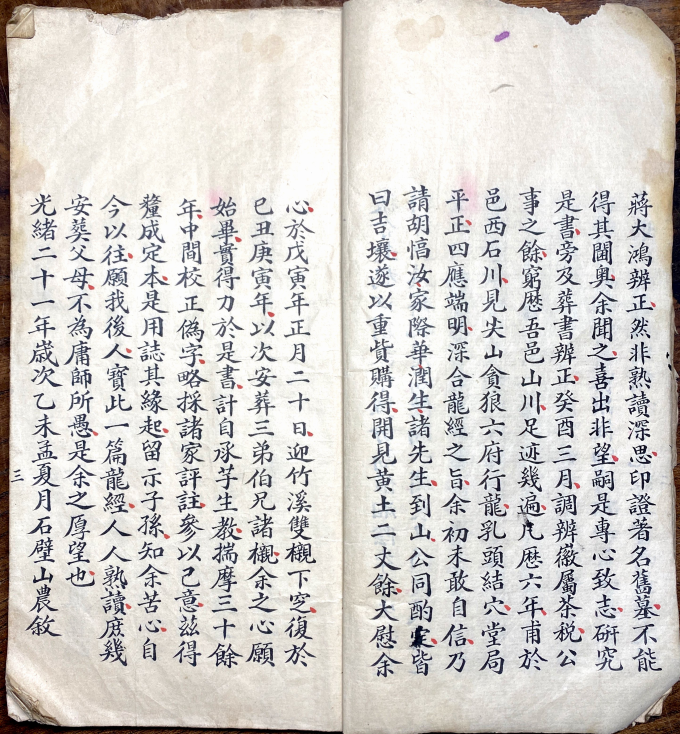 蔣大鴻辨正然非熟讀深思印證著名舊墓不能
得其閫奧余聞之喜出非望嗣是專心致志研究
是書旁及葬書辨正癸酉三月調辦徽屬茶税公
事之餘窮歷吾邑山川足迹幾遍凡歷六年甫於
邑西石川見尖山貪狼六府行龍乳頭結穴堂局
平正四應端明深合龍經之旨余初未敢自信乃
請胡愊汝家際華潤生諸先生到山公同酌定皆
曰吉壤遂以重貲購得開見黃土二丈餘大慰余
心於戊寅年正月二十日迎竹溪雙櫬下窆復於
己丑庚寅年以次安葬三弟伯兄諸櫬余之心願
始畢實得力於是書計自承芋生教揣摩三十餘
年中間校正偽字略採諸家評註參以己意茲得
釐成定本是用誌其緣起留示子孫知余苦心自
今以往願我後人寶此一篇龍經人人熟讀庶幾
安葬父母不為庸師所愚是余之厚望也
光緒二十一年歲次乙未孟夏月石壁山農敘
三